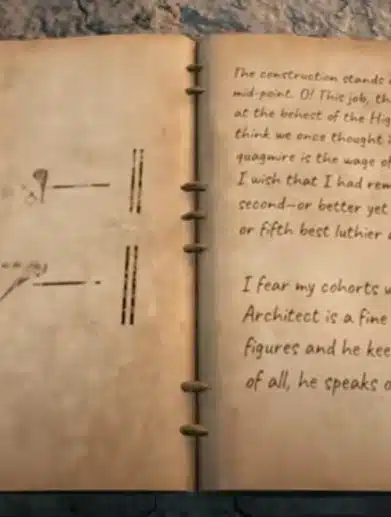 The construction stands
mid-point. O! This job, th
at the behest of the Hig
think we once thought
quagmire is the wage of
I wish that I had rem
second—or better yet
or fifth best luthier
I fear my cohorts w
Architect is a fine
figures and he kee
of all, he speaks o